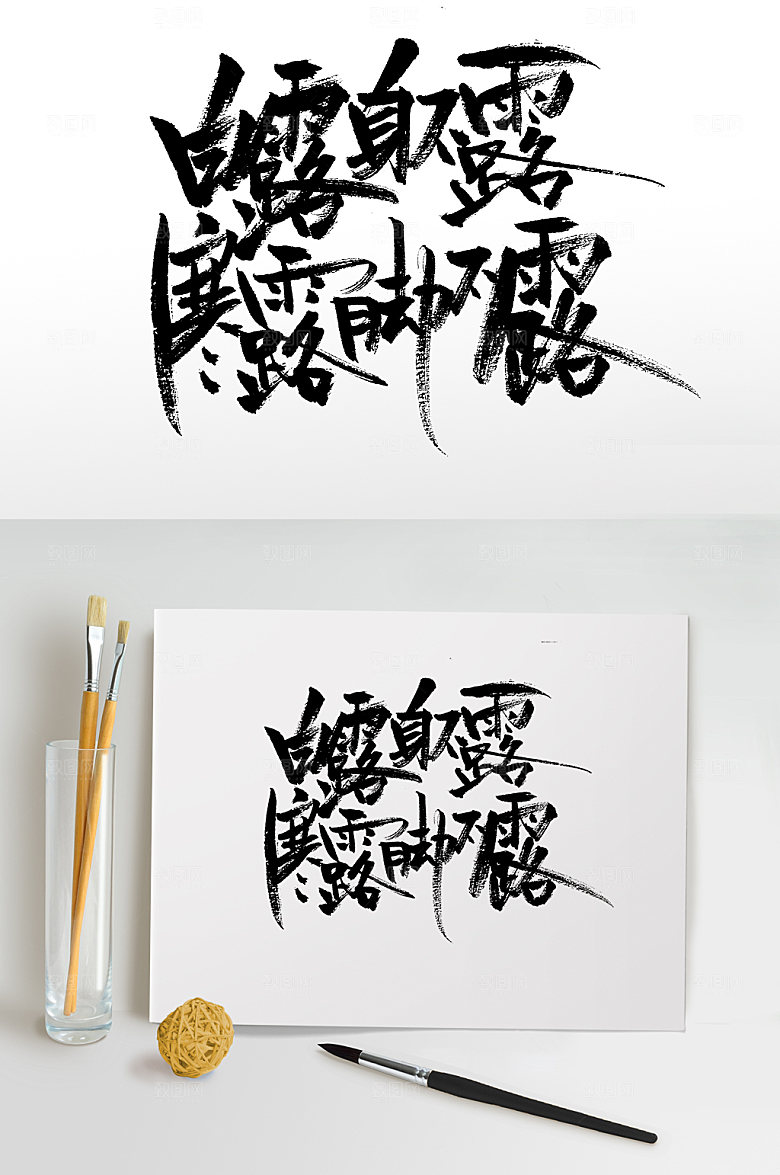 白露身不露
寒露脚不露
白露身不露
寒露脚不露